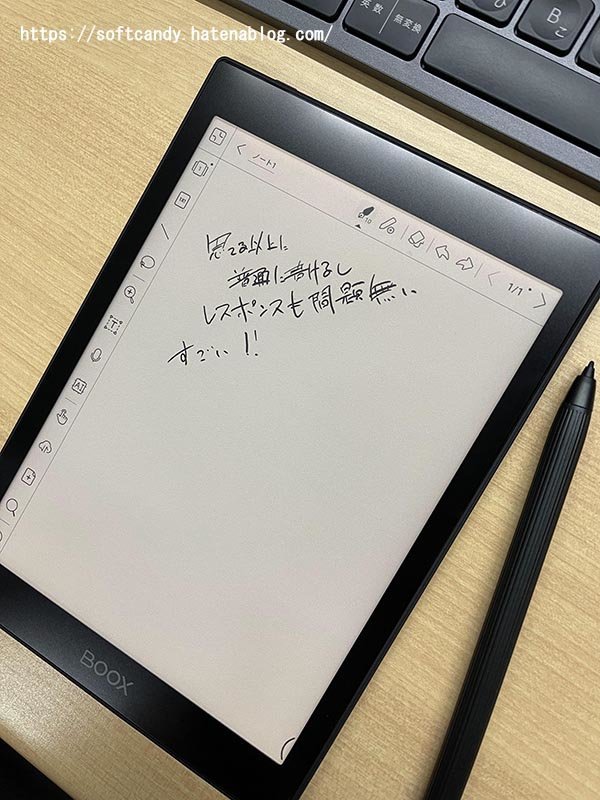 https://softcandy.hatenablog.com/
英数
無変換
ひ
B
こ
ノート1
10
1/1
T
AI
思てる以上に
普通に書けるし
レスポンスも問題無い
すごい!!
BOOX